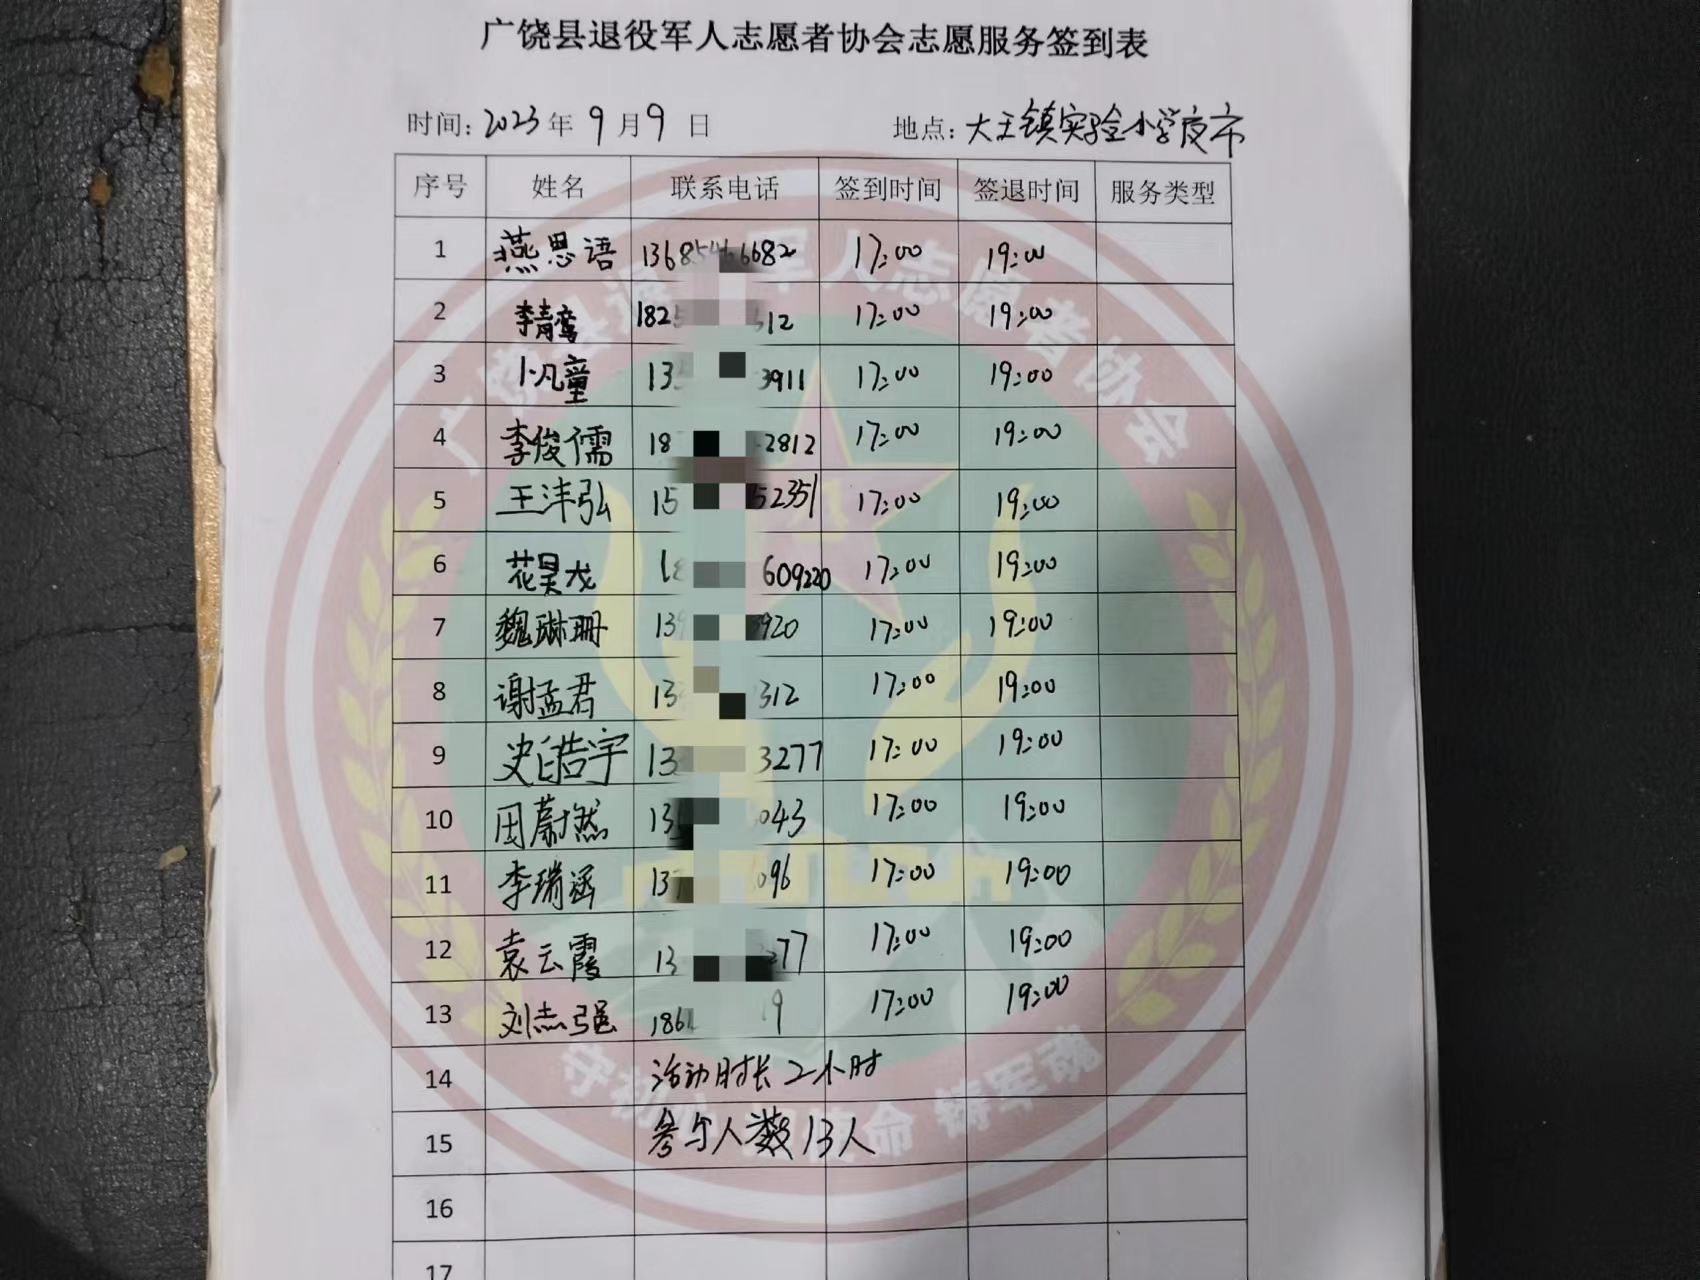 广饶县退役军人志愿者协会志愿服务签到表
时间: 2023 年 9 月 9 日 地点: 大王镇实验小学夜市
序号 姓名 联系电话 签到时间 签退时间 服务类型
1 燕思语 17:00 19:00
2 李青鸾 182 312 17:00 19:00
3 卜凡童 13 3911 17:00 19:00
4 李俊儒 18 2812 17:00 19:00
5 王沣弘 15 52351 17:00 19:00
6 花昊龙 609220 17:00 19:00
7 魏琳珊 13 920 17:00 19:00
8 谢孟君 13 312 17:00 19:00
9 史皓宇 13 3277 17:00 19:00
10 田蔚然 13 043 17:00 19:00
11 李瑞涵 13 096 17:00 19:00
12 袁云霞 13 277 17:00 19:00
13 刘志强 186 19 17:00 19:00
14 活动时长2小时
15 参与人数13人
16
17
广饶县退 军人志愿者协会
守初 命 铸军魂